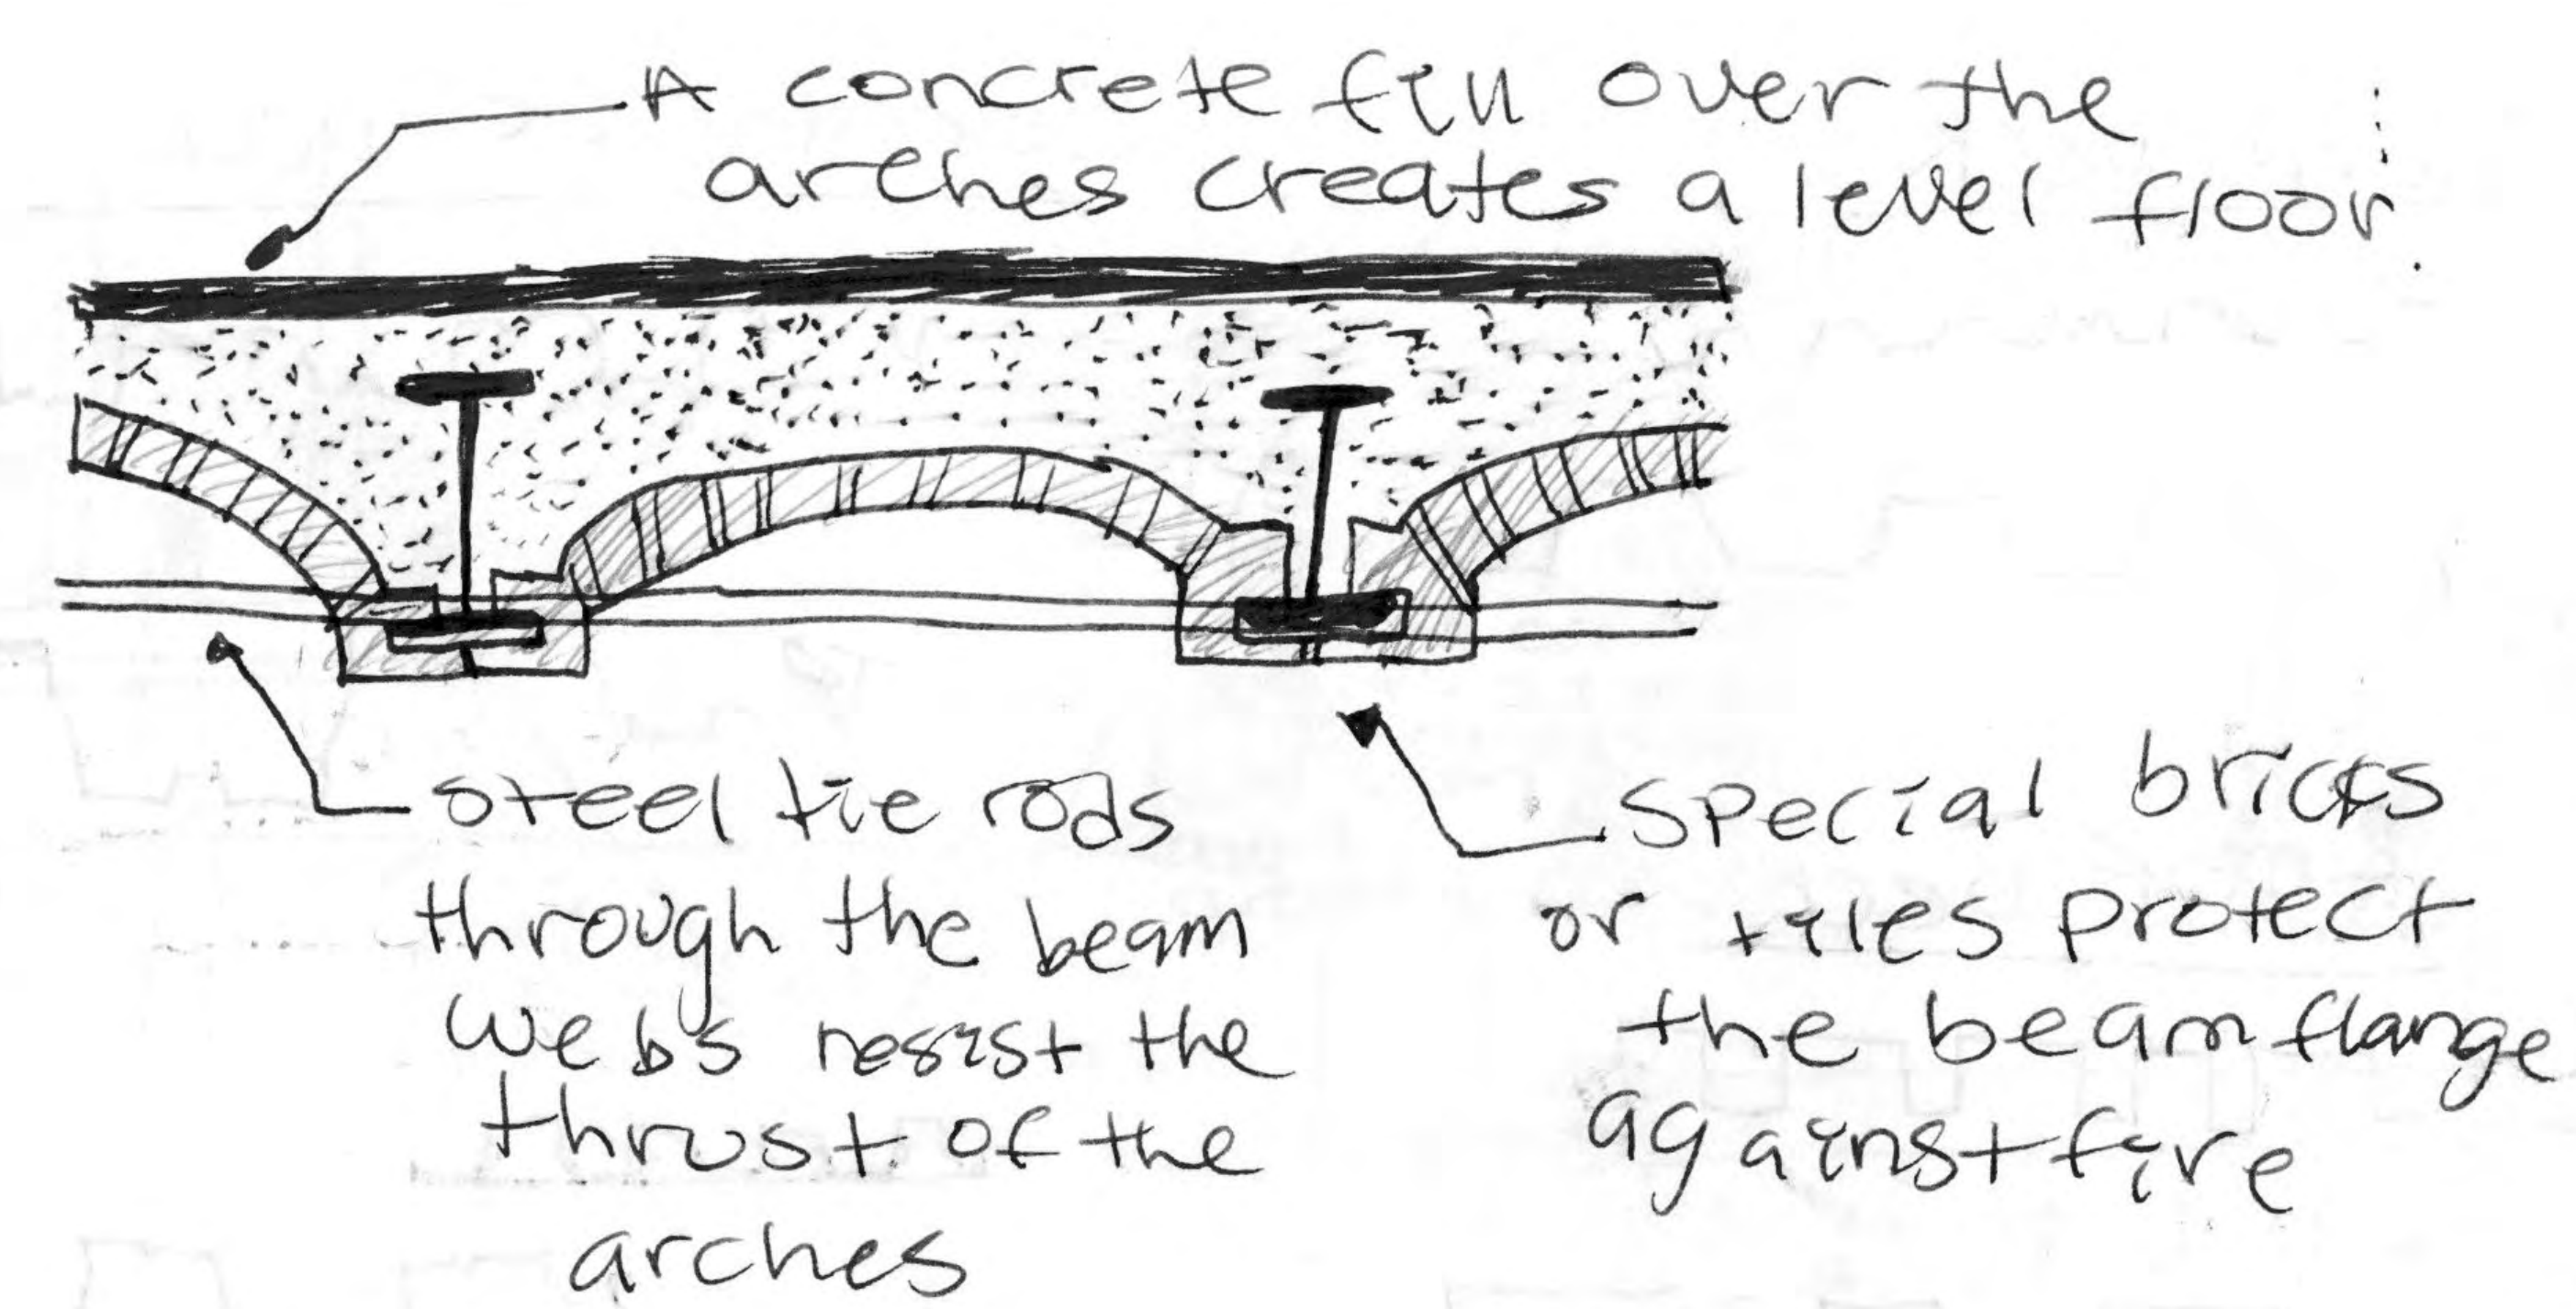 A concrete fill over the
arches creates a level floor.
steel tie rods
through the beam
webs resist the
thrust of the
arches
special bricks
or tiles protect
the beam flange
against fire